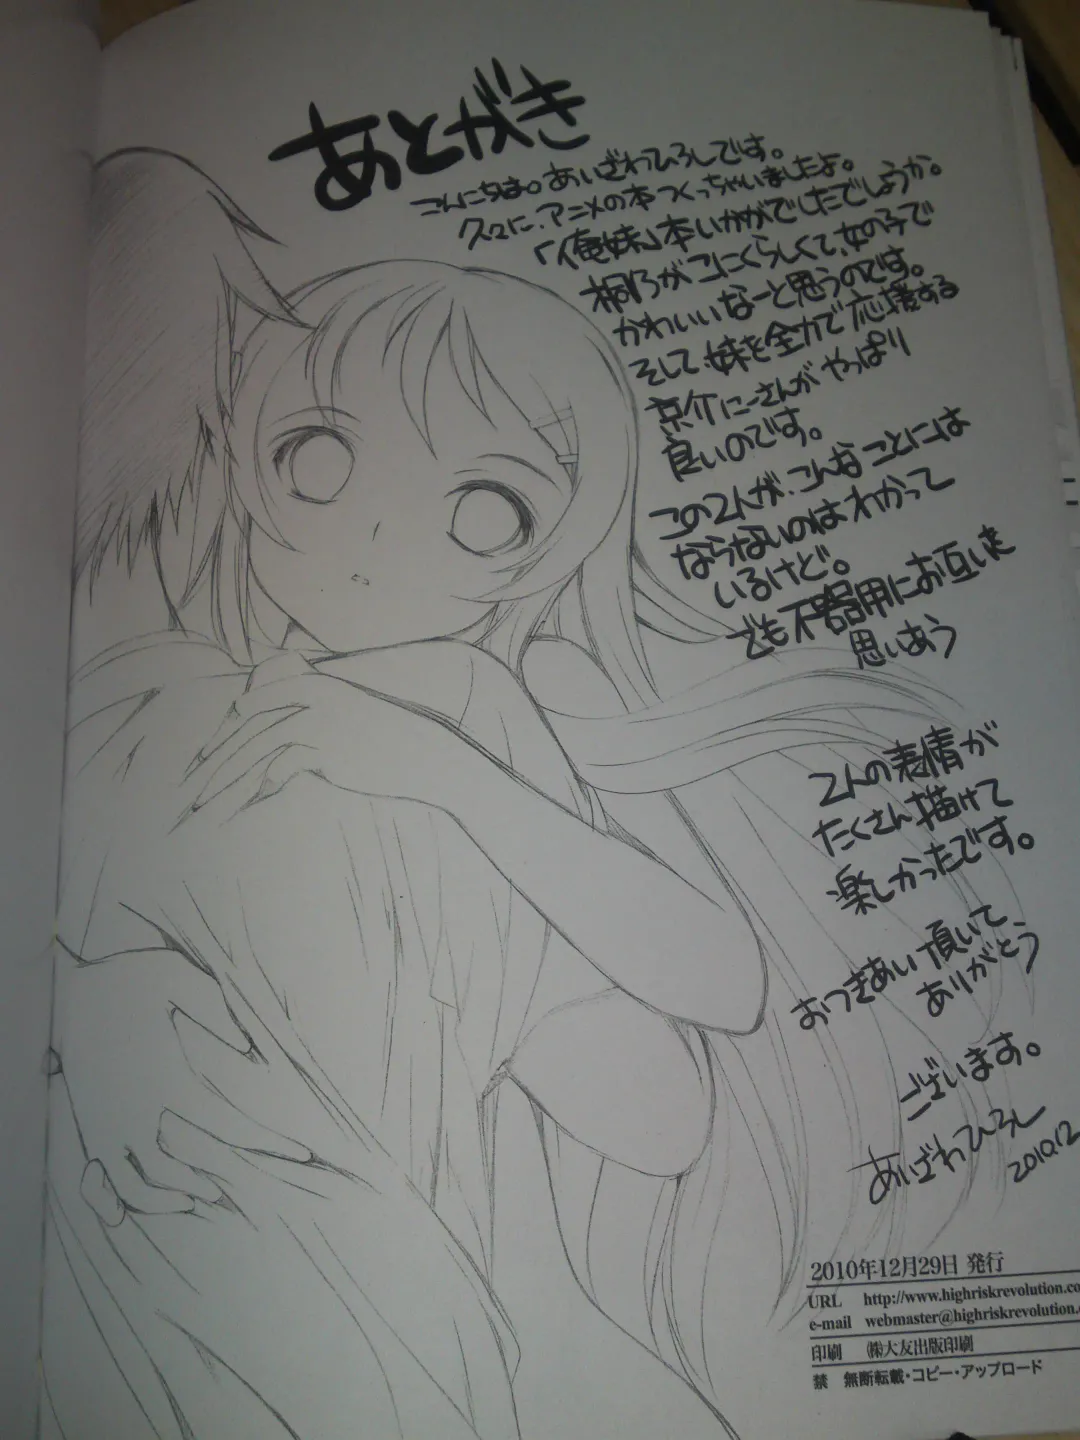 あとがき
こんにちは。あいざわひろしです。
久々に、アニメの本つくっちゃいましたよ。
「俺妹」本いかがでしたでしょうか。
桐乃がこにくらしくて、女の子で
かわいいなーと思うのです。
そして、妹を全力で応援する
京介にーさんがやっぱり
良いのです。
この2人が、こんなことには
ならないのはわかって
いるけど。
でも不器用にお互いを
思いあう
2人の表情が
たくさん描けて
楽しかったです。
おつきあい頂いて、
ありがとう
ございます。
あいざわひろし
2010.12
2010年12月29日 発行
URL http://www.highriskrevolution.co
e-mail webmaster@highriskrevolution.
印刷 ㈱大友出版印刷
禁 無断転載・コピー・アップロード